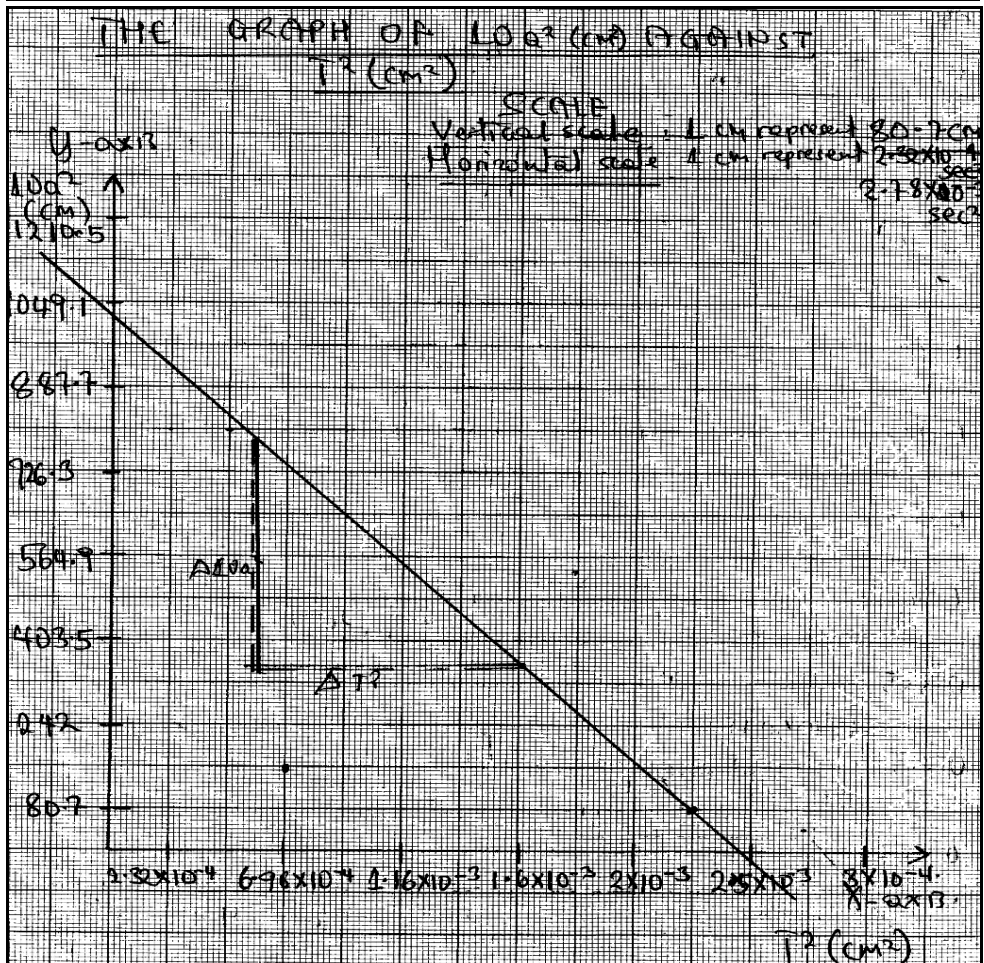 THE GRAPH OF 10a² (cm) AGAINST
T² (cm²)
SCALE
Vertical scale : 1 cm represent 80.7cm
Horizontal scale 1 cm represent 2.32x10⁻⁴
sec
2.78x10⁻
sec²
y-axis
10a²
(cm)
1210.5
1049.1
887.7
726.3
564.9
403.5
242
80.7
Δ10a²
ΔT²
2.32x10⁻⁴ 6.96x10⁻⁴ 1.16x10⁻³ 1.6x10⁻³ 2x10⁻³ 2.5x10⁻³ 3x10⁻⁴
x-axis
T² (cm²)